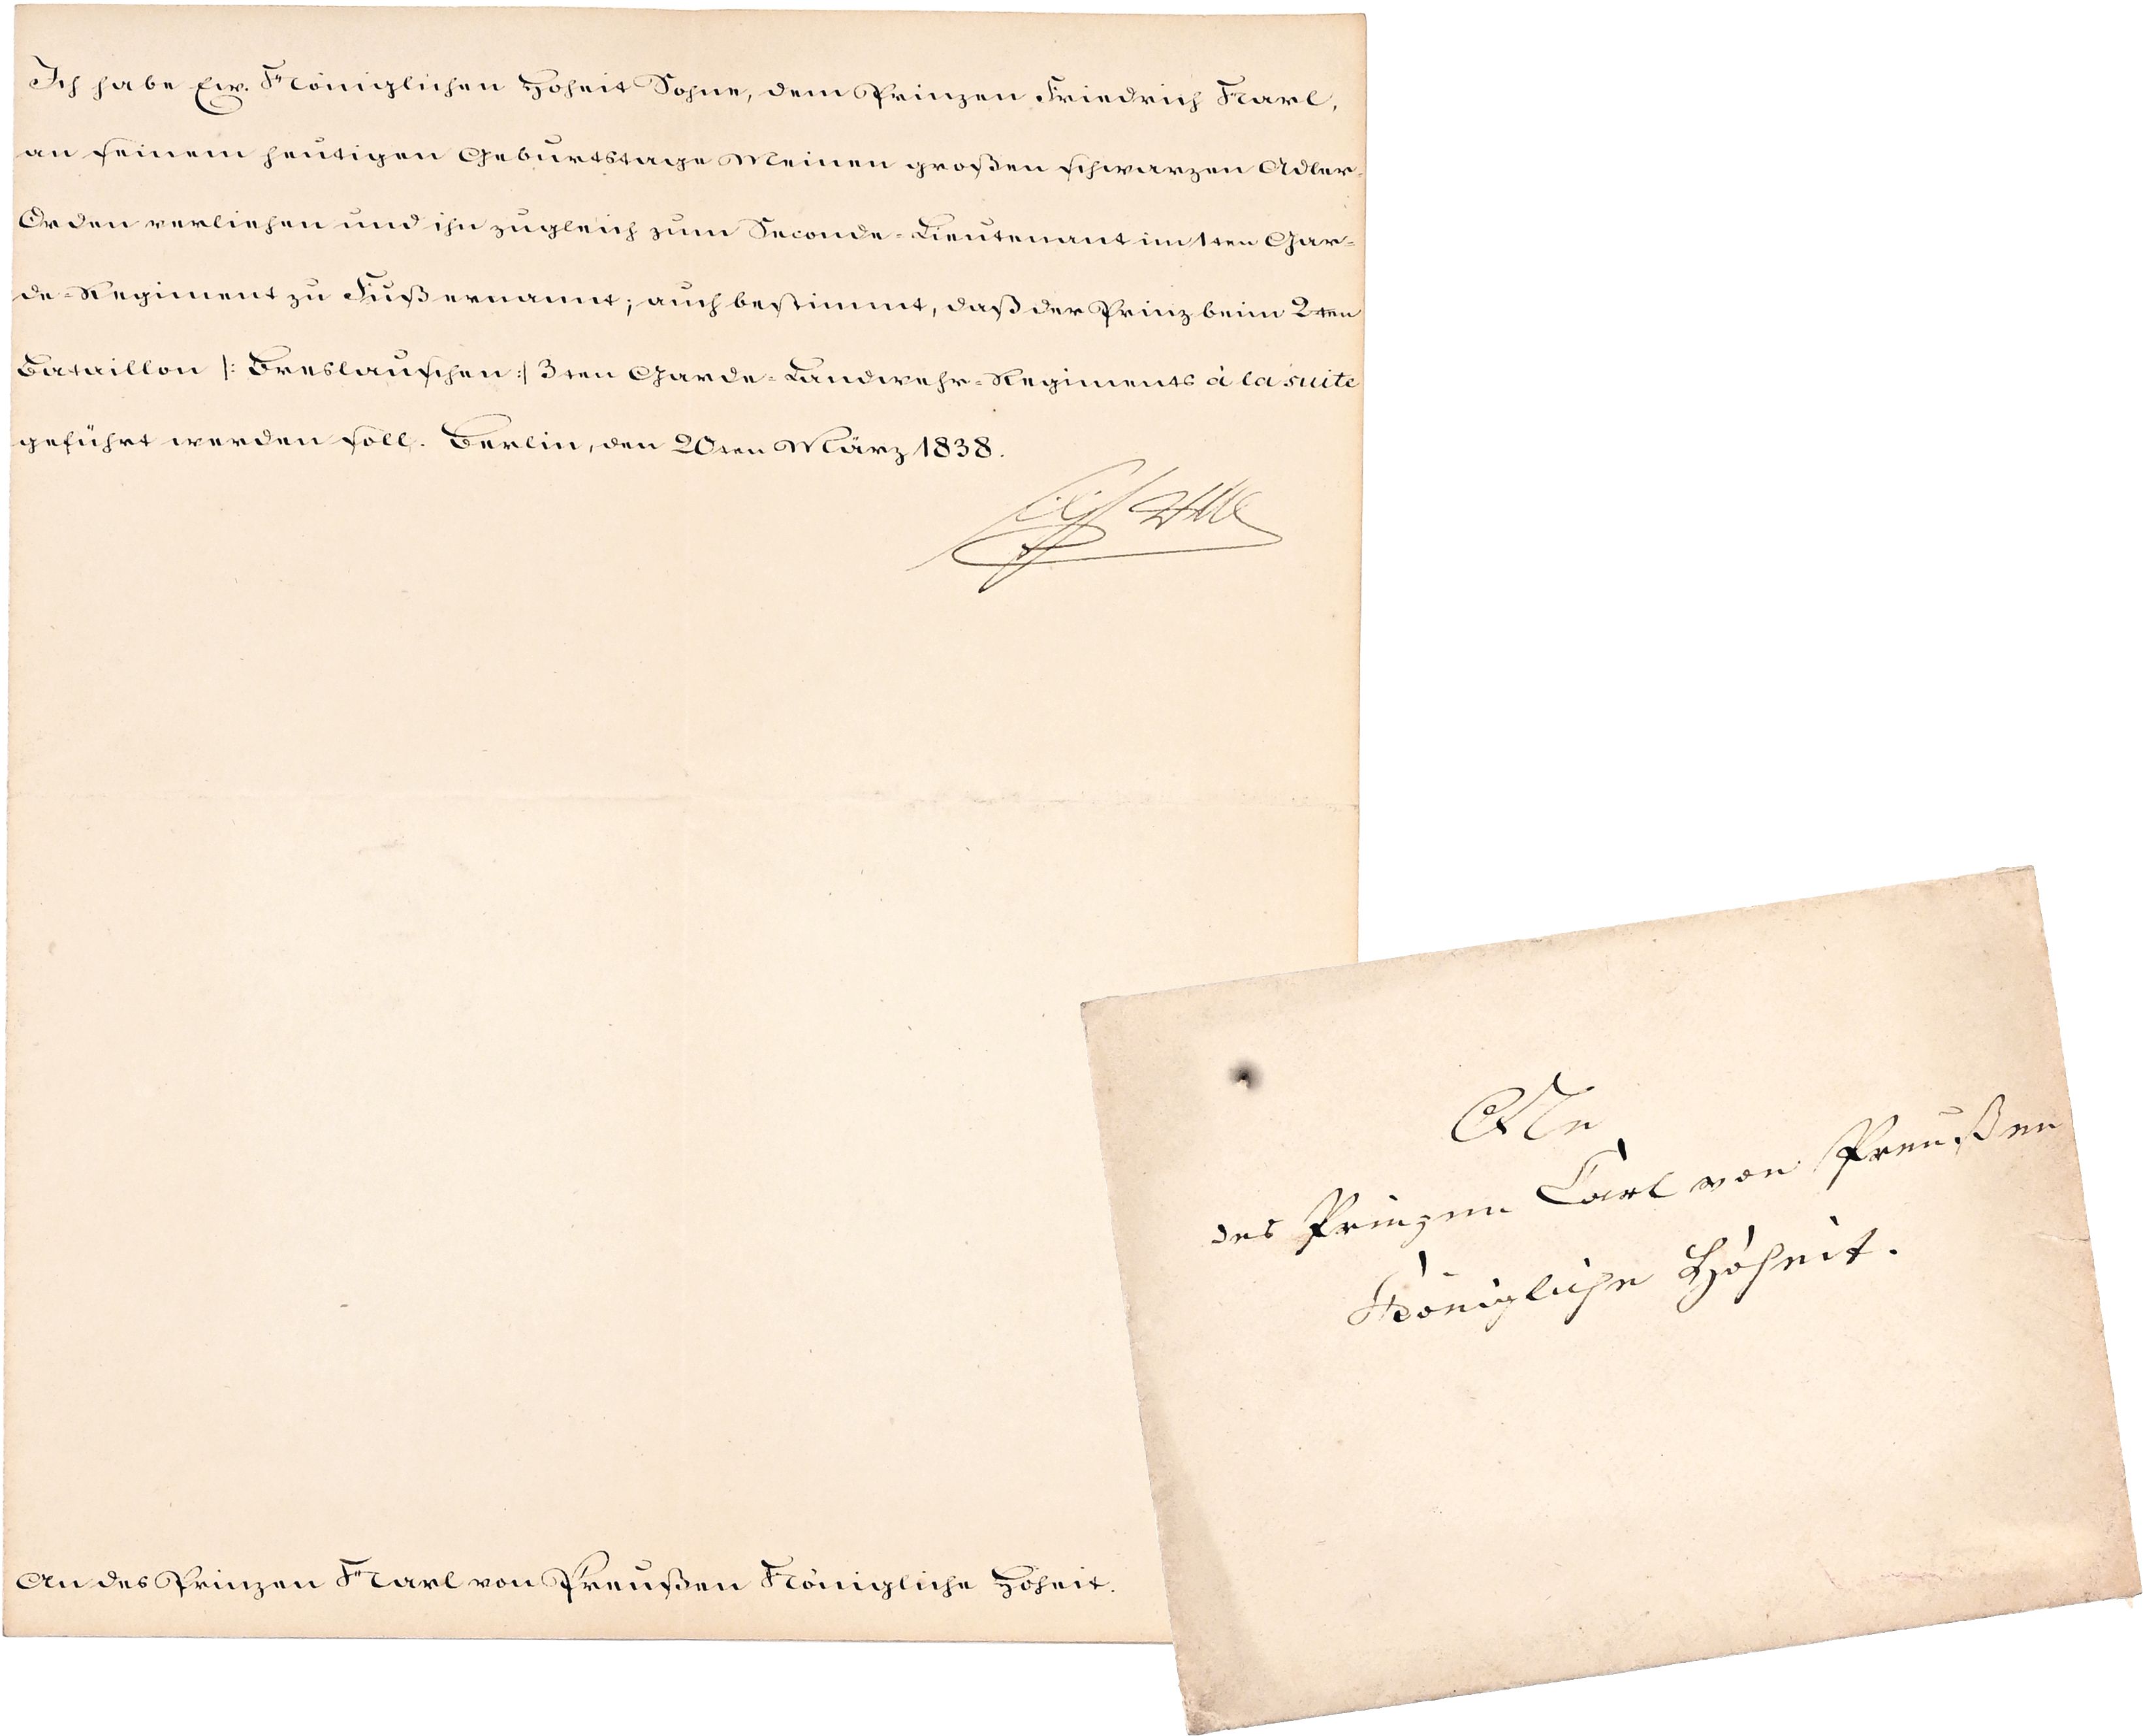 Ich habe Ew. Königlichen Hoheit Sohne, dem Prinzen Friedrich Karl,
an seinem heutigen Geburtstage Meinen großen schwarzen Adler-
Orden verliehen und ihn zugleich zum Seconde-Lieutenant im 1ten Gar-
de-Regiment zu Fuß ernannt; auch bestimmt, daß der Prinz beim 2ten
Bataillon |: Breslauschen :| 3ten Garde-Landwehr-Regiments à la suite
geführt werden soll. Berlin, den 20ten März 1838.
An des Prinzen Karl von Preußen Königliche Hoheit.
An
des Prinzen Carl von Preußen
Königliche Hoheit.